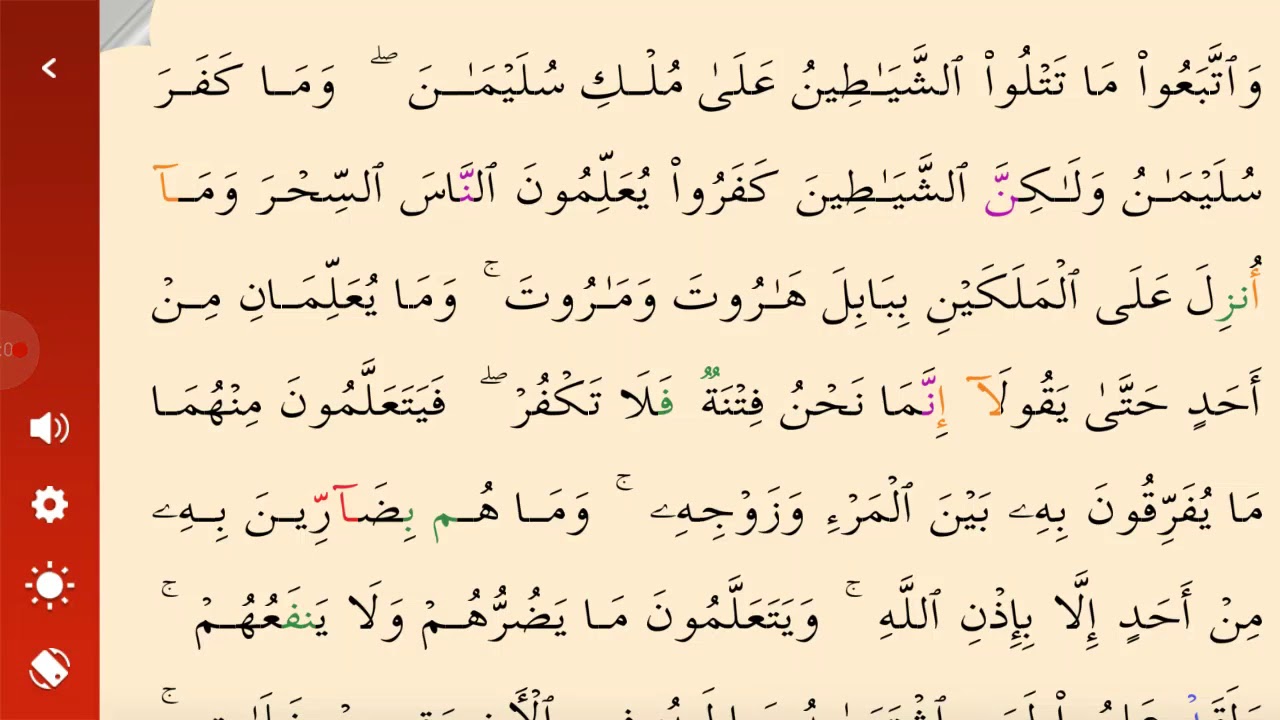 وَٱتَّبَعُوا۟ مَا تَتْلُوا۟ ٱلشَّيَـٰطِينُ عَلَىٰ مُلْـكِ سُلَيْمَـٰـنَ ۖ وَمَـا كَفَـرَ
سُلَيْمَـٰنُ وَلَـٰكِنَّ ٱلشَّيَـٰطِينَ كَفَرُوا۟ يُعَلِّمُونَ ٱلنَّاسَ ٱلسِّحْرَ وَمَـآ
أُنزِلَ عَلَى ٱلْمَلَكَيْنِ بِبَابِلَ هَـٰرُوتَ وَمَـٰرُوتَ ۚ وَمَـا يُعَلِّمَـانِ مِـنْ
أَحَدٍ حَتَّىٰ يَقُولَآ إِنَّمَا نَحْنُ فِتْنَةٌ فَلَا تَكْفُرْ ۖ فَيَتَعَلَّمُونَ مِنْهُمَـا
مَا يُفَرِّقُونَ بِهِۦ بَيْنَ ٱلْمَرْءِ وَزَوْجِهِۦ ۚ وَمَـا هُـم بِضَآرِّيـنَ بِـهِۦ
مِنْ أَحَدٍ إِلَّا بِإِذْنِ ٱللَّهِ ۚ وَيَتَعَلَّمُونَ مَـا يَضُرُّهُـمْ وَلَا يَنفَعُهُـمْ ۚ